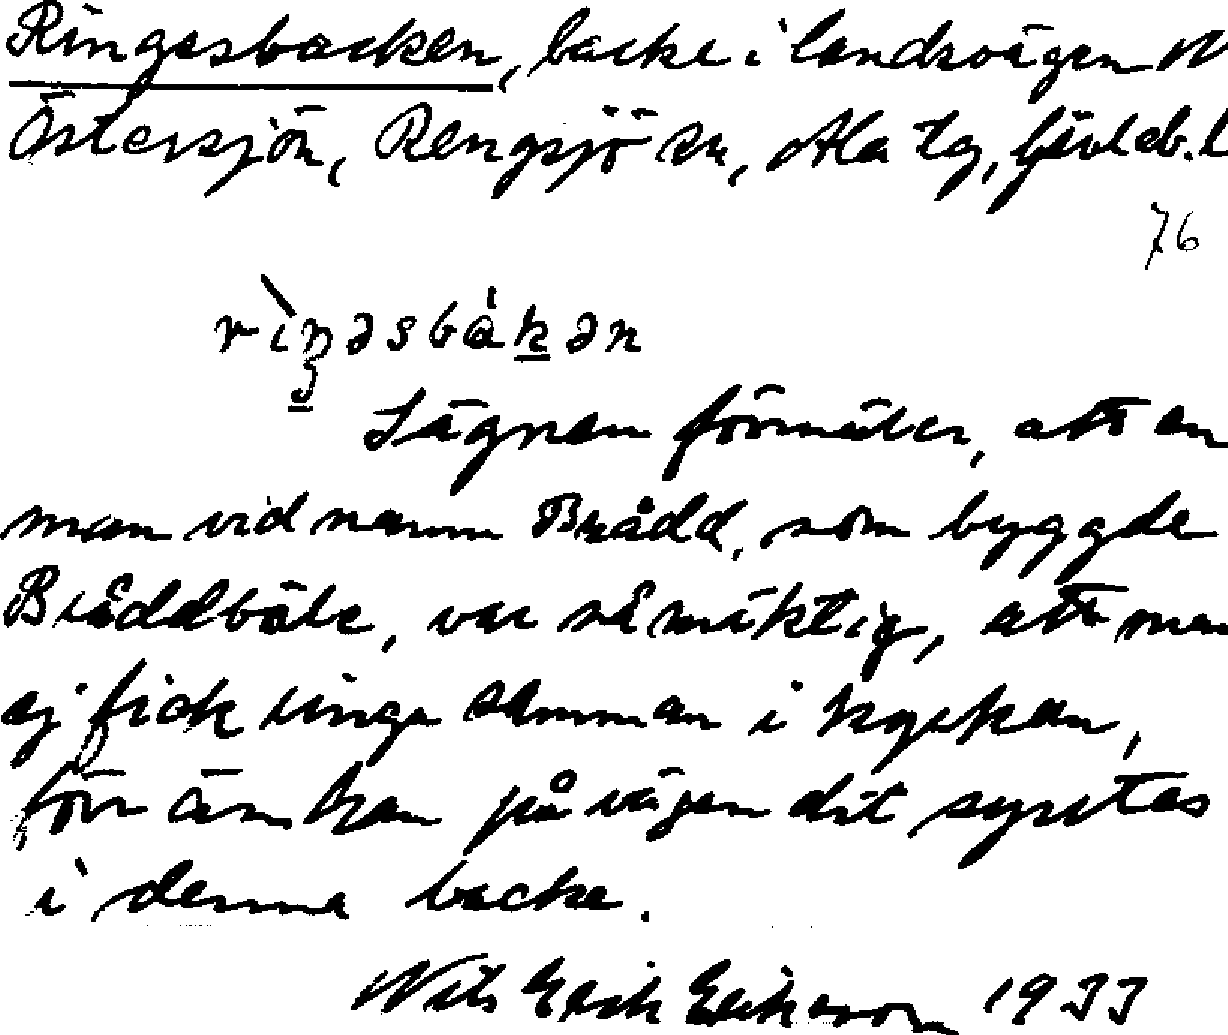 Ringesbacken, backe i landsvägen N
Östersjön, Rengsjö sn, Ala tg, Gävleb. l
76
rìŋəsbàkən
Sägnen förmäler, att en
man vid namn Brådd, som byggde
Bråddböle, var så mäktig, att man
ej fick ringa samman i kyrkan,
förr än han på vägen dit syntes
i denna backe.
Nils Erik Eriksson 1933